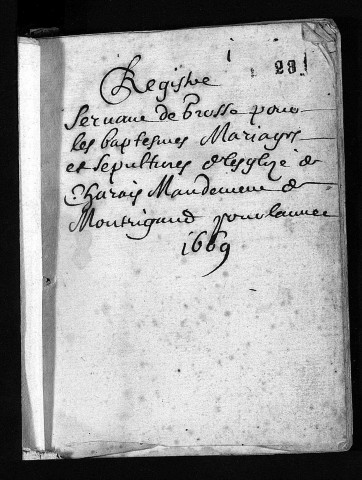 23
Registre
servant de brosse pour
les baptesmes Mariages
et sepultures de lesglize de
Charais Mandement de
Montrigaud pour lannee
1669